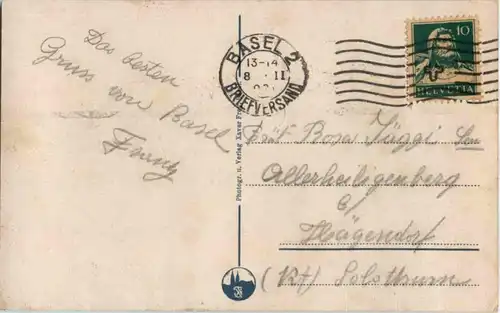 Das besten
Gruss von Basel
Franz
BASEL 2
13-14
8. II
BRIEFVERSAND
10
HELVETIA
Photogr. u. Verlag Xaver
Rosa Jäggi Sen
Allerheiligenberg
b/
Hägendorf
(Kt) Solothurn